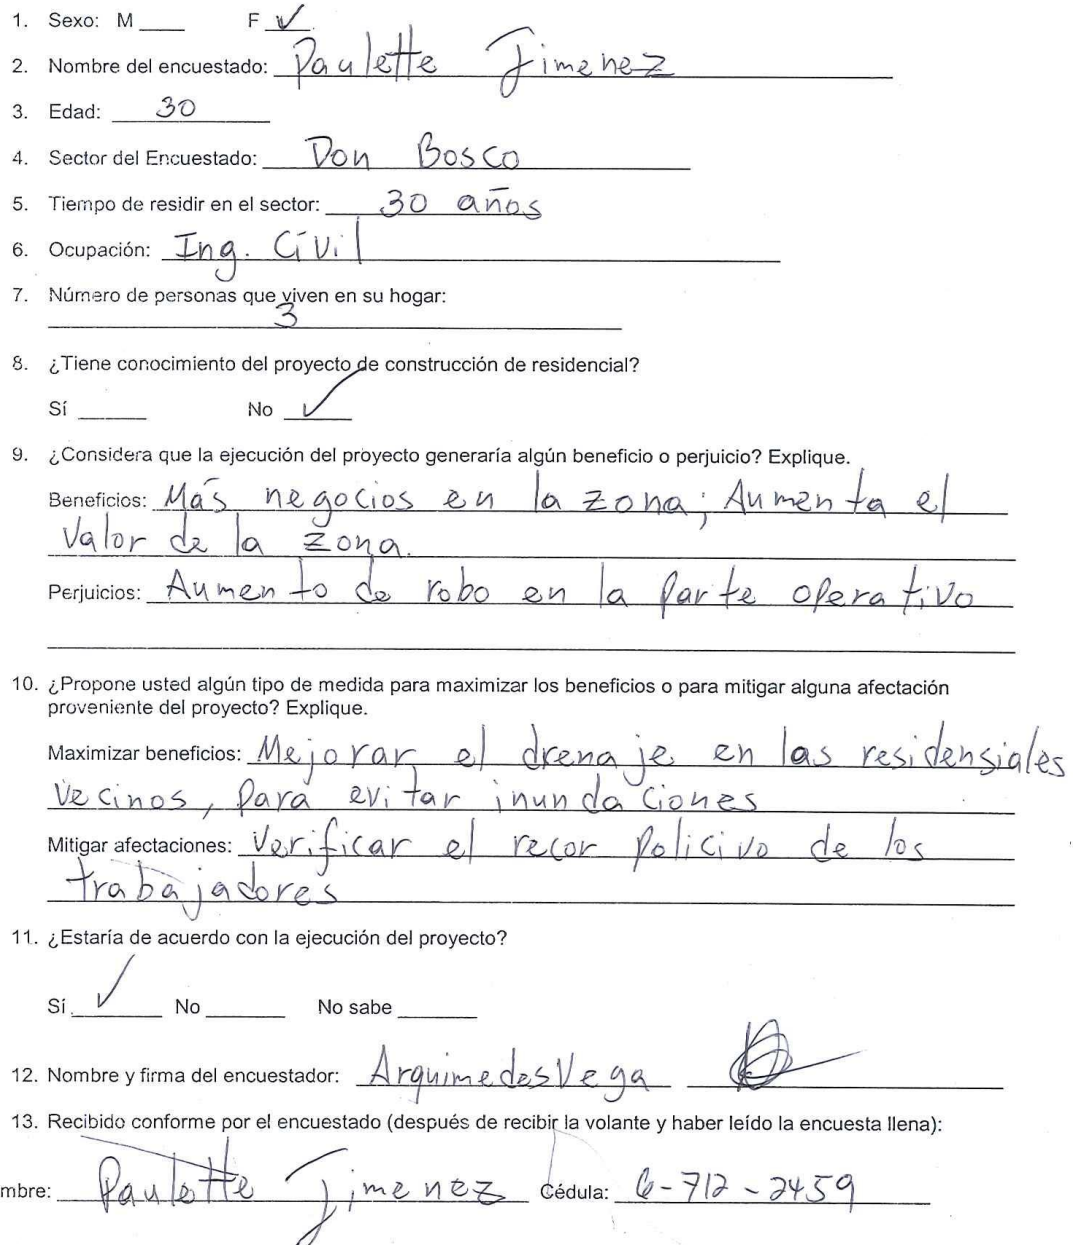 1. Sexo: M ____ F ✓
2. Nombre del encuestado: Paulette Jimenez
3. Edad: 30
4. Sector del Encuestado: Don Bosco
5. Tiempo de residir en el sector: 30 años
6. Ocupación: Ing. Civil
7. Número de personas que viven en su hogar:
3
8. ¿Tiene conocimiento del proyecto de construcción de residencial?
Sí ____ No ✓
9. ¿Considera que la ejecución del proyecto generaría algún beneficio o perjuicio? Explique.
Beneficios: Más negocios en la zona; Aumenta el
Valor de la zona.
Perjuicios: Aumento de robo en la parte operativo
10. ¿Propone usted algún tipo de medida para maximizar los beneficios o para mitigar alguna afectación
proveniente del proyecto? Explique.
Maximizar beneficios: Mejorar el drenaje en las residensiales
Vecinos, para evitar inundaciones
Mitigar afectaciones: Verificar el recor policivo de los
trabajadores
11. ¿Estaría de acuerdo con la ejecución del proyecto?
Sí ✓ No ____ No sabe ____
12. Nombre y firma del encuestador: Arquimedes Vega
13. Recibido conforme por el encuestado (después de recibir la volante y haber leído la encuesta llena):
mbre: Paulette Jimenez Cédula: 6-712-2459